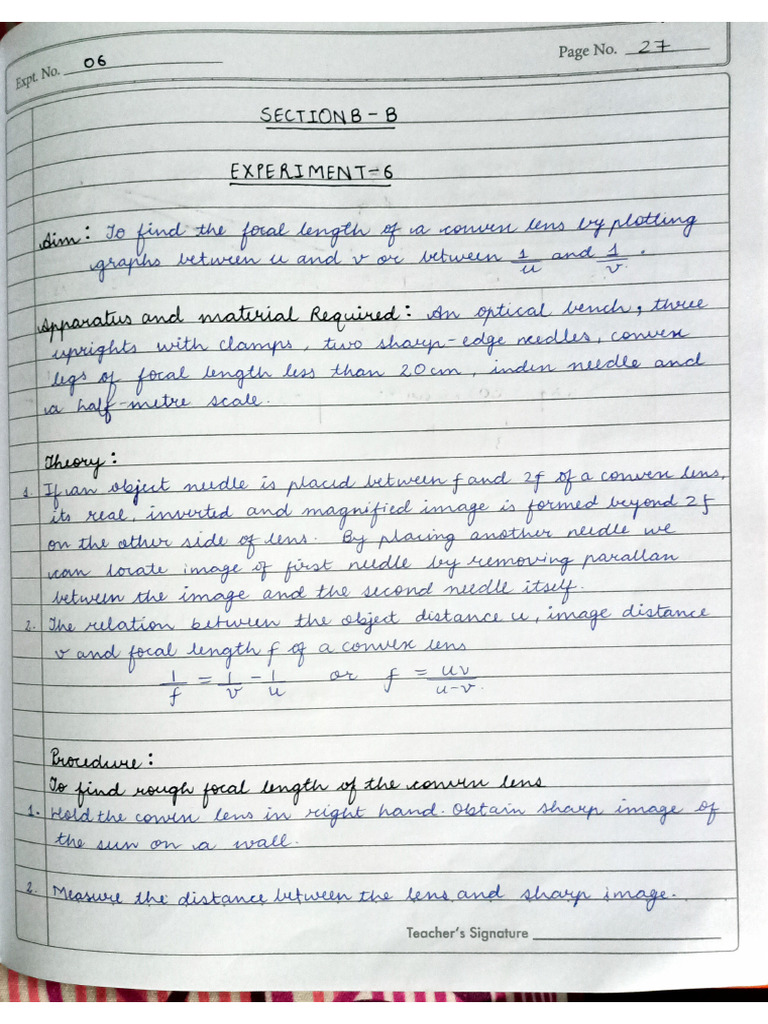 Expt. No. 06
Page No. 27
SECTION B - B
EXPERIMENT-6
Aim: To find the focal length of a convex lens by plotting
graphs between u and v or between 1/u and 1/v.
Apparatus and material Required: An optical bench, three
uprights with clamps, two sharp-edge needles, convex
legs of focal length less than 20cm, index needle and
a half-metre scale.
Theory:
1. If an object needle is placed between f and 2f of a convex lens,
its real, inverted and magnified image is formed beyond 2f
on the other side of lens. By placing another needle we
can locate image of first needle by removing parallax
between the image and the second needle itself.
2. The relation between the object distance u, image distance
v and focal length f of a convex lens
1/f = 1/v - 1/u or f = uv/u-v.
Procedure:
To find rough focal length of the convex lens
1. Hold the convex lens in right hand. Obtain sharp image of
the sun on a wall.
2. Measure the distance between the lens and sharp image.
Teacher's Signature